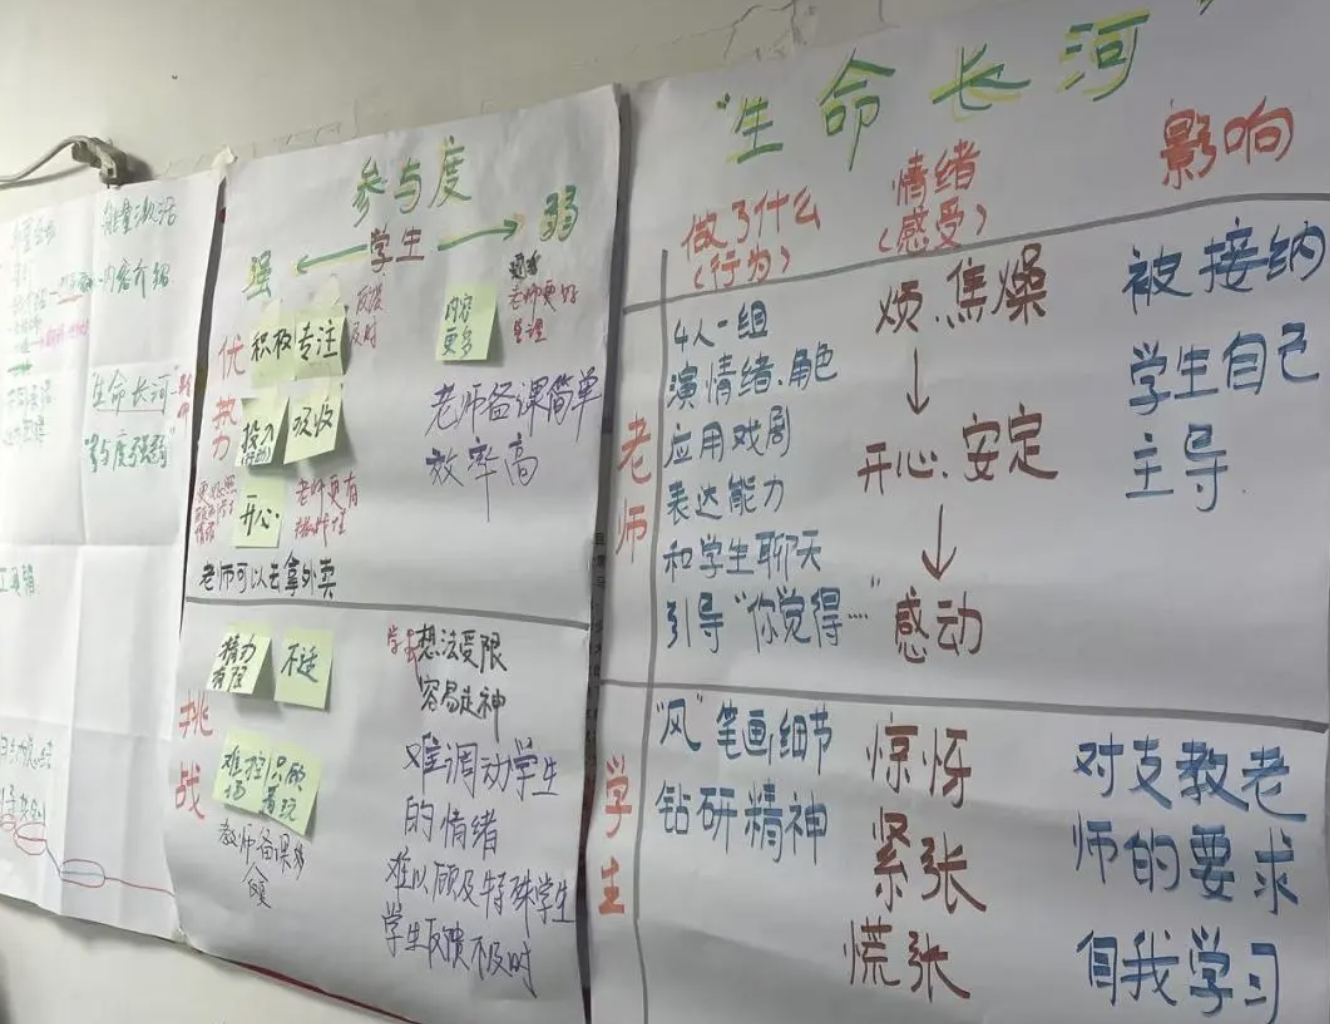 能量激活
内容介绍
"生命长河"
"参与度强弱"
工具箱
参与度
强 ← 学生 → 弱
优势
积极 专注
反馈
及时
投入
吸收
开心
老师更有
老师可以去拿外卖
内容
更多
老师更好
老师备课简单
效率高
挑战
精力
有限
不适
难控
场
只顾
着玩
教师备课
学生想法受限
容易走神
难调动学生
的情绪
难以顾及特殊学生
学生反馈不及时
"生命长河"
做了什么
(行为)
情绪
(感受)
影响
老师
4人一组
演情绪、角色
应用戏剧
表达能力
和学生聊天
引导"你觉得…"
烦、焦燥
↓
开心、安定
↓
感动
被接纳
学生自己
主导
学生
"风"笔画细节
钻研精神
惊怕
紧张
慌张
对支教老
师的要求
自我学习